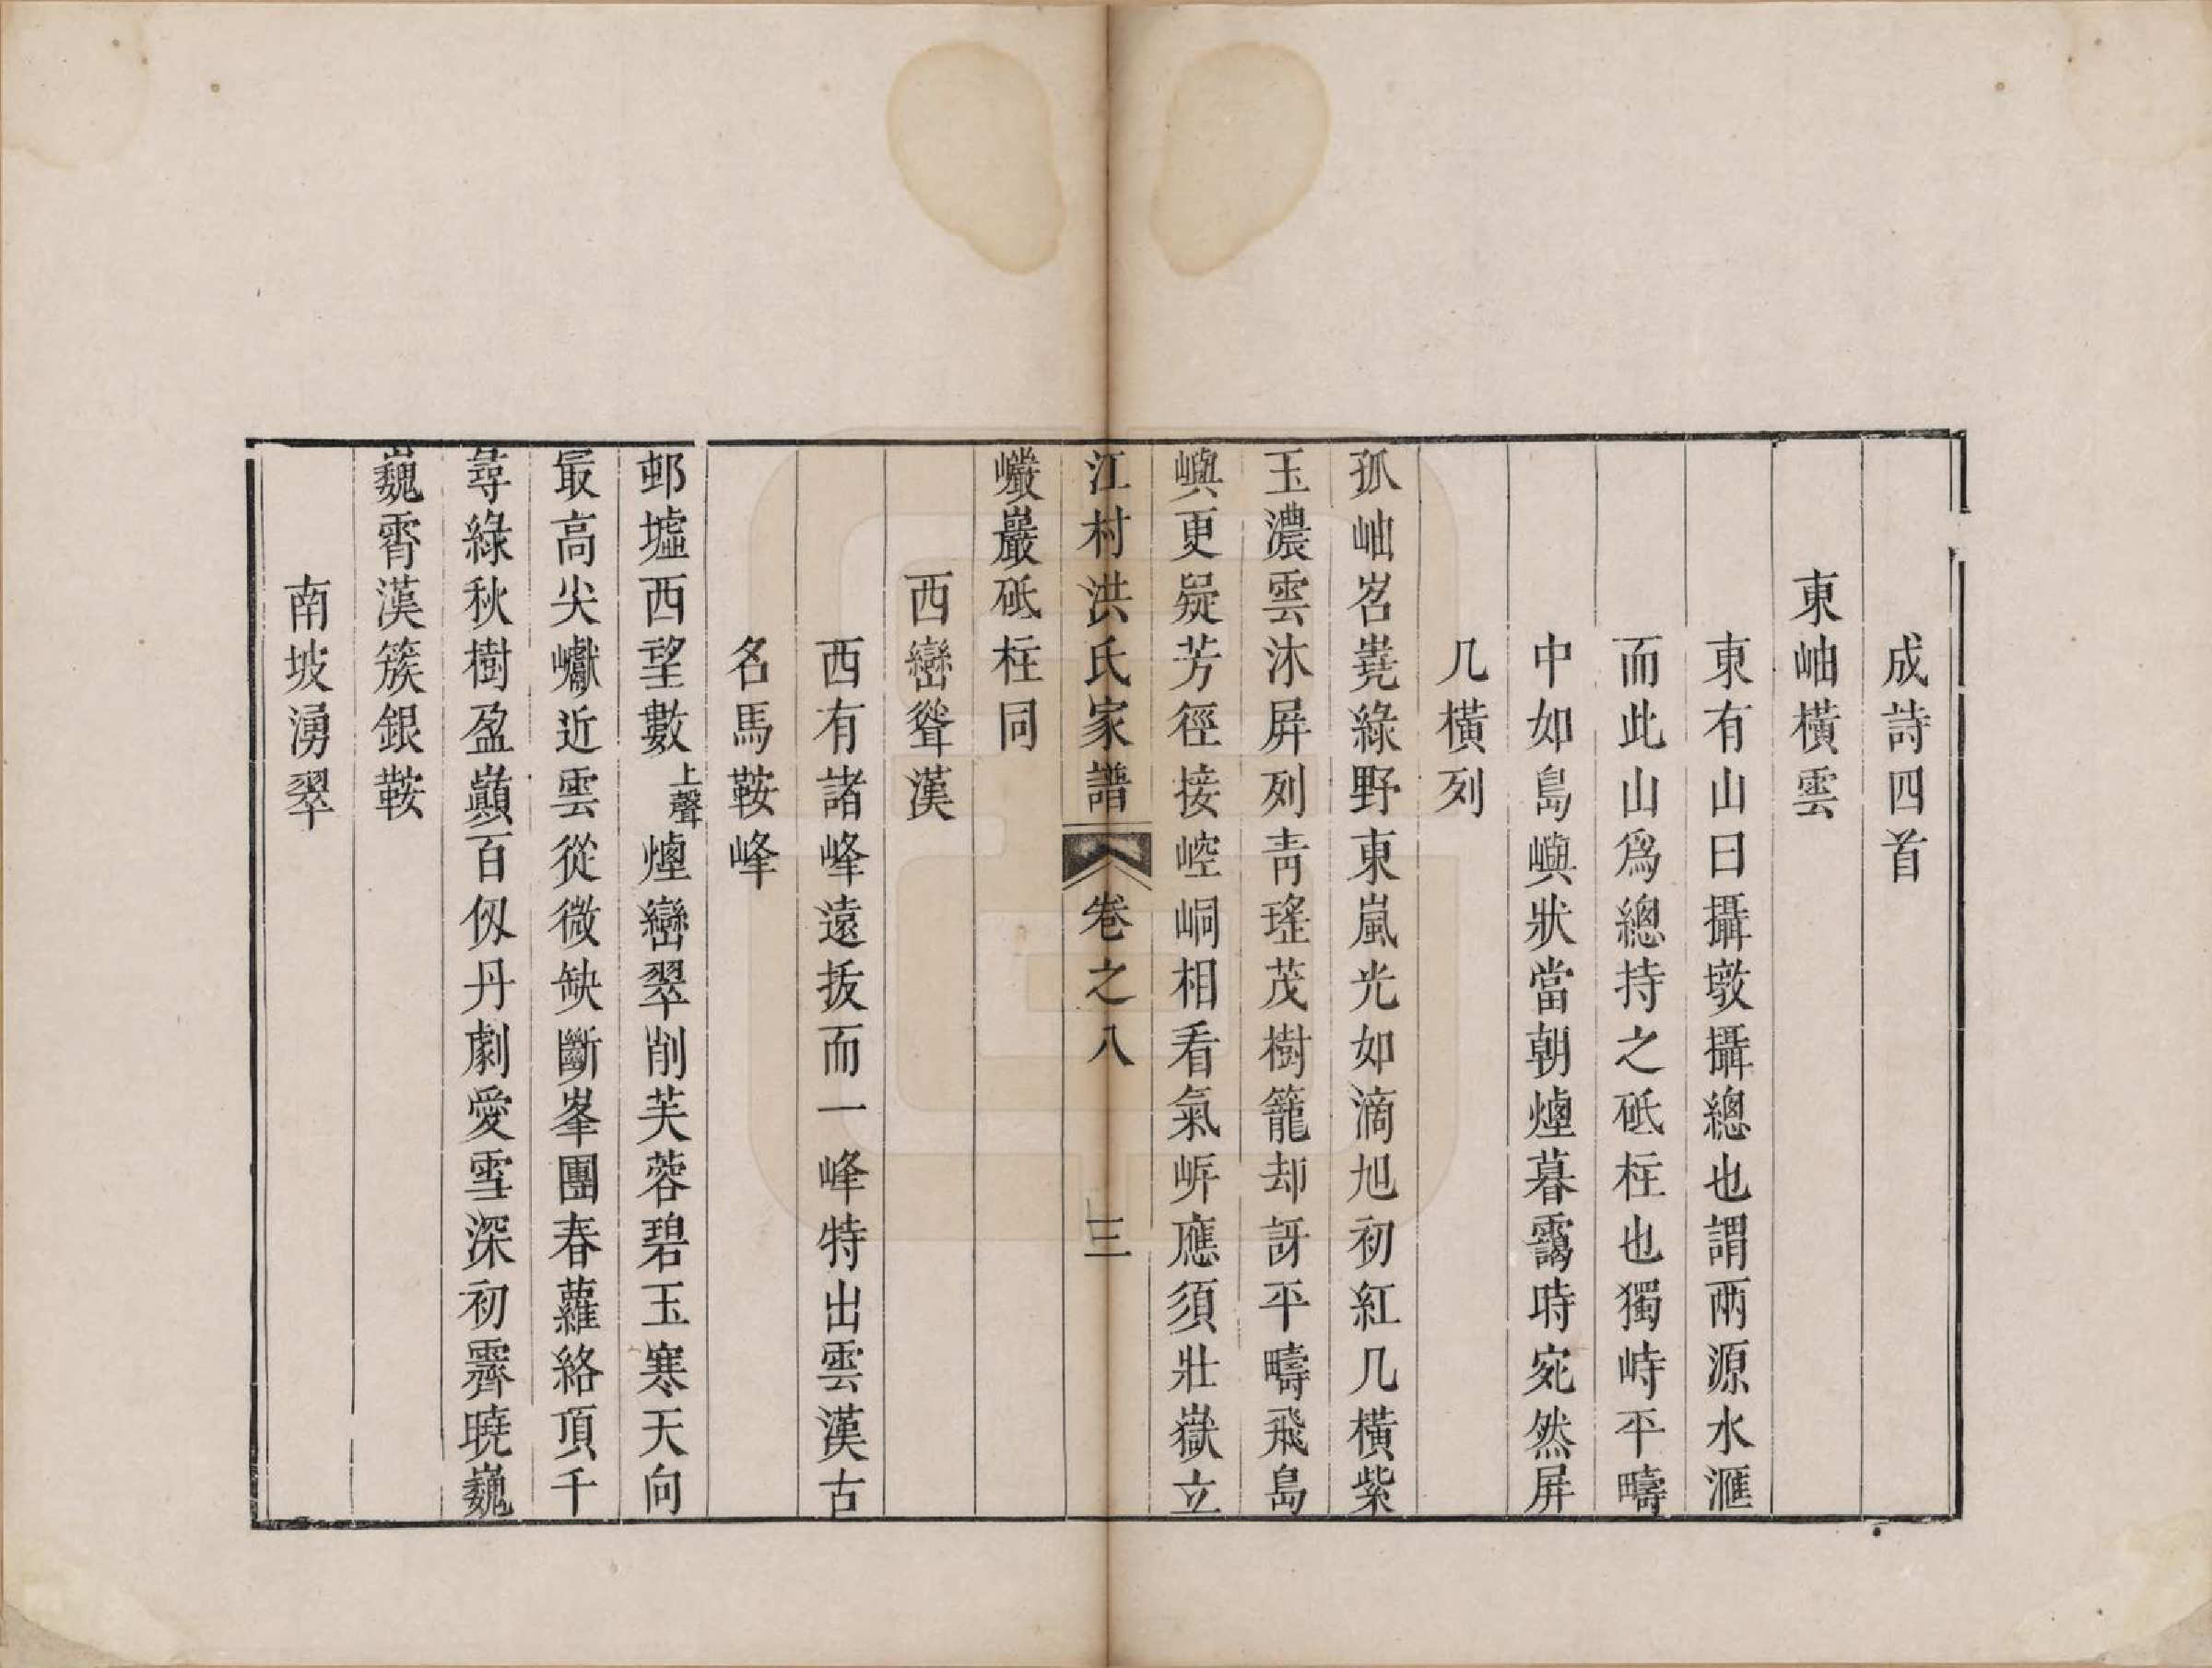 成詩四首
東岫橫雲
東有山曰攝墩攝總也謂兩源水滙
而此山爲總持之砥柱也獨峙平疇
中如島嶼狀當朝煙暮靄時宛然屏
几橫列
孤岫岧嶤綠野東嵐光如滴旭初紅几橫紫
玉濃雲沐屏列靑瑤茂樹籠却訝平疇飛島
嶼更嶷芳徑接崆峒相看氣㟁應須壯嶽立
巉巖砥柱同
江村洪氏家譜 卷之八 三
西巒聳漢
西有諸峰遠拔而一峰特出雲漢古
名馬鞍峰
邨墟西望數上聲煙巒翠削芙蓉碧玉寒天向
最高尖巘近雲從微缺斷峯團春蘿絡頂千
尋綠秋樹盈巔百仭丹劇愛雪深初霽曉巍
巍霄漢簇銀鞍
南坡湧翠